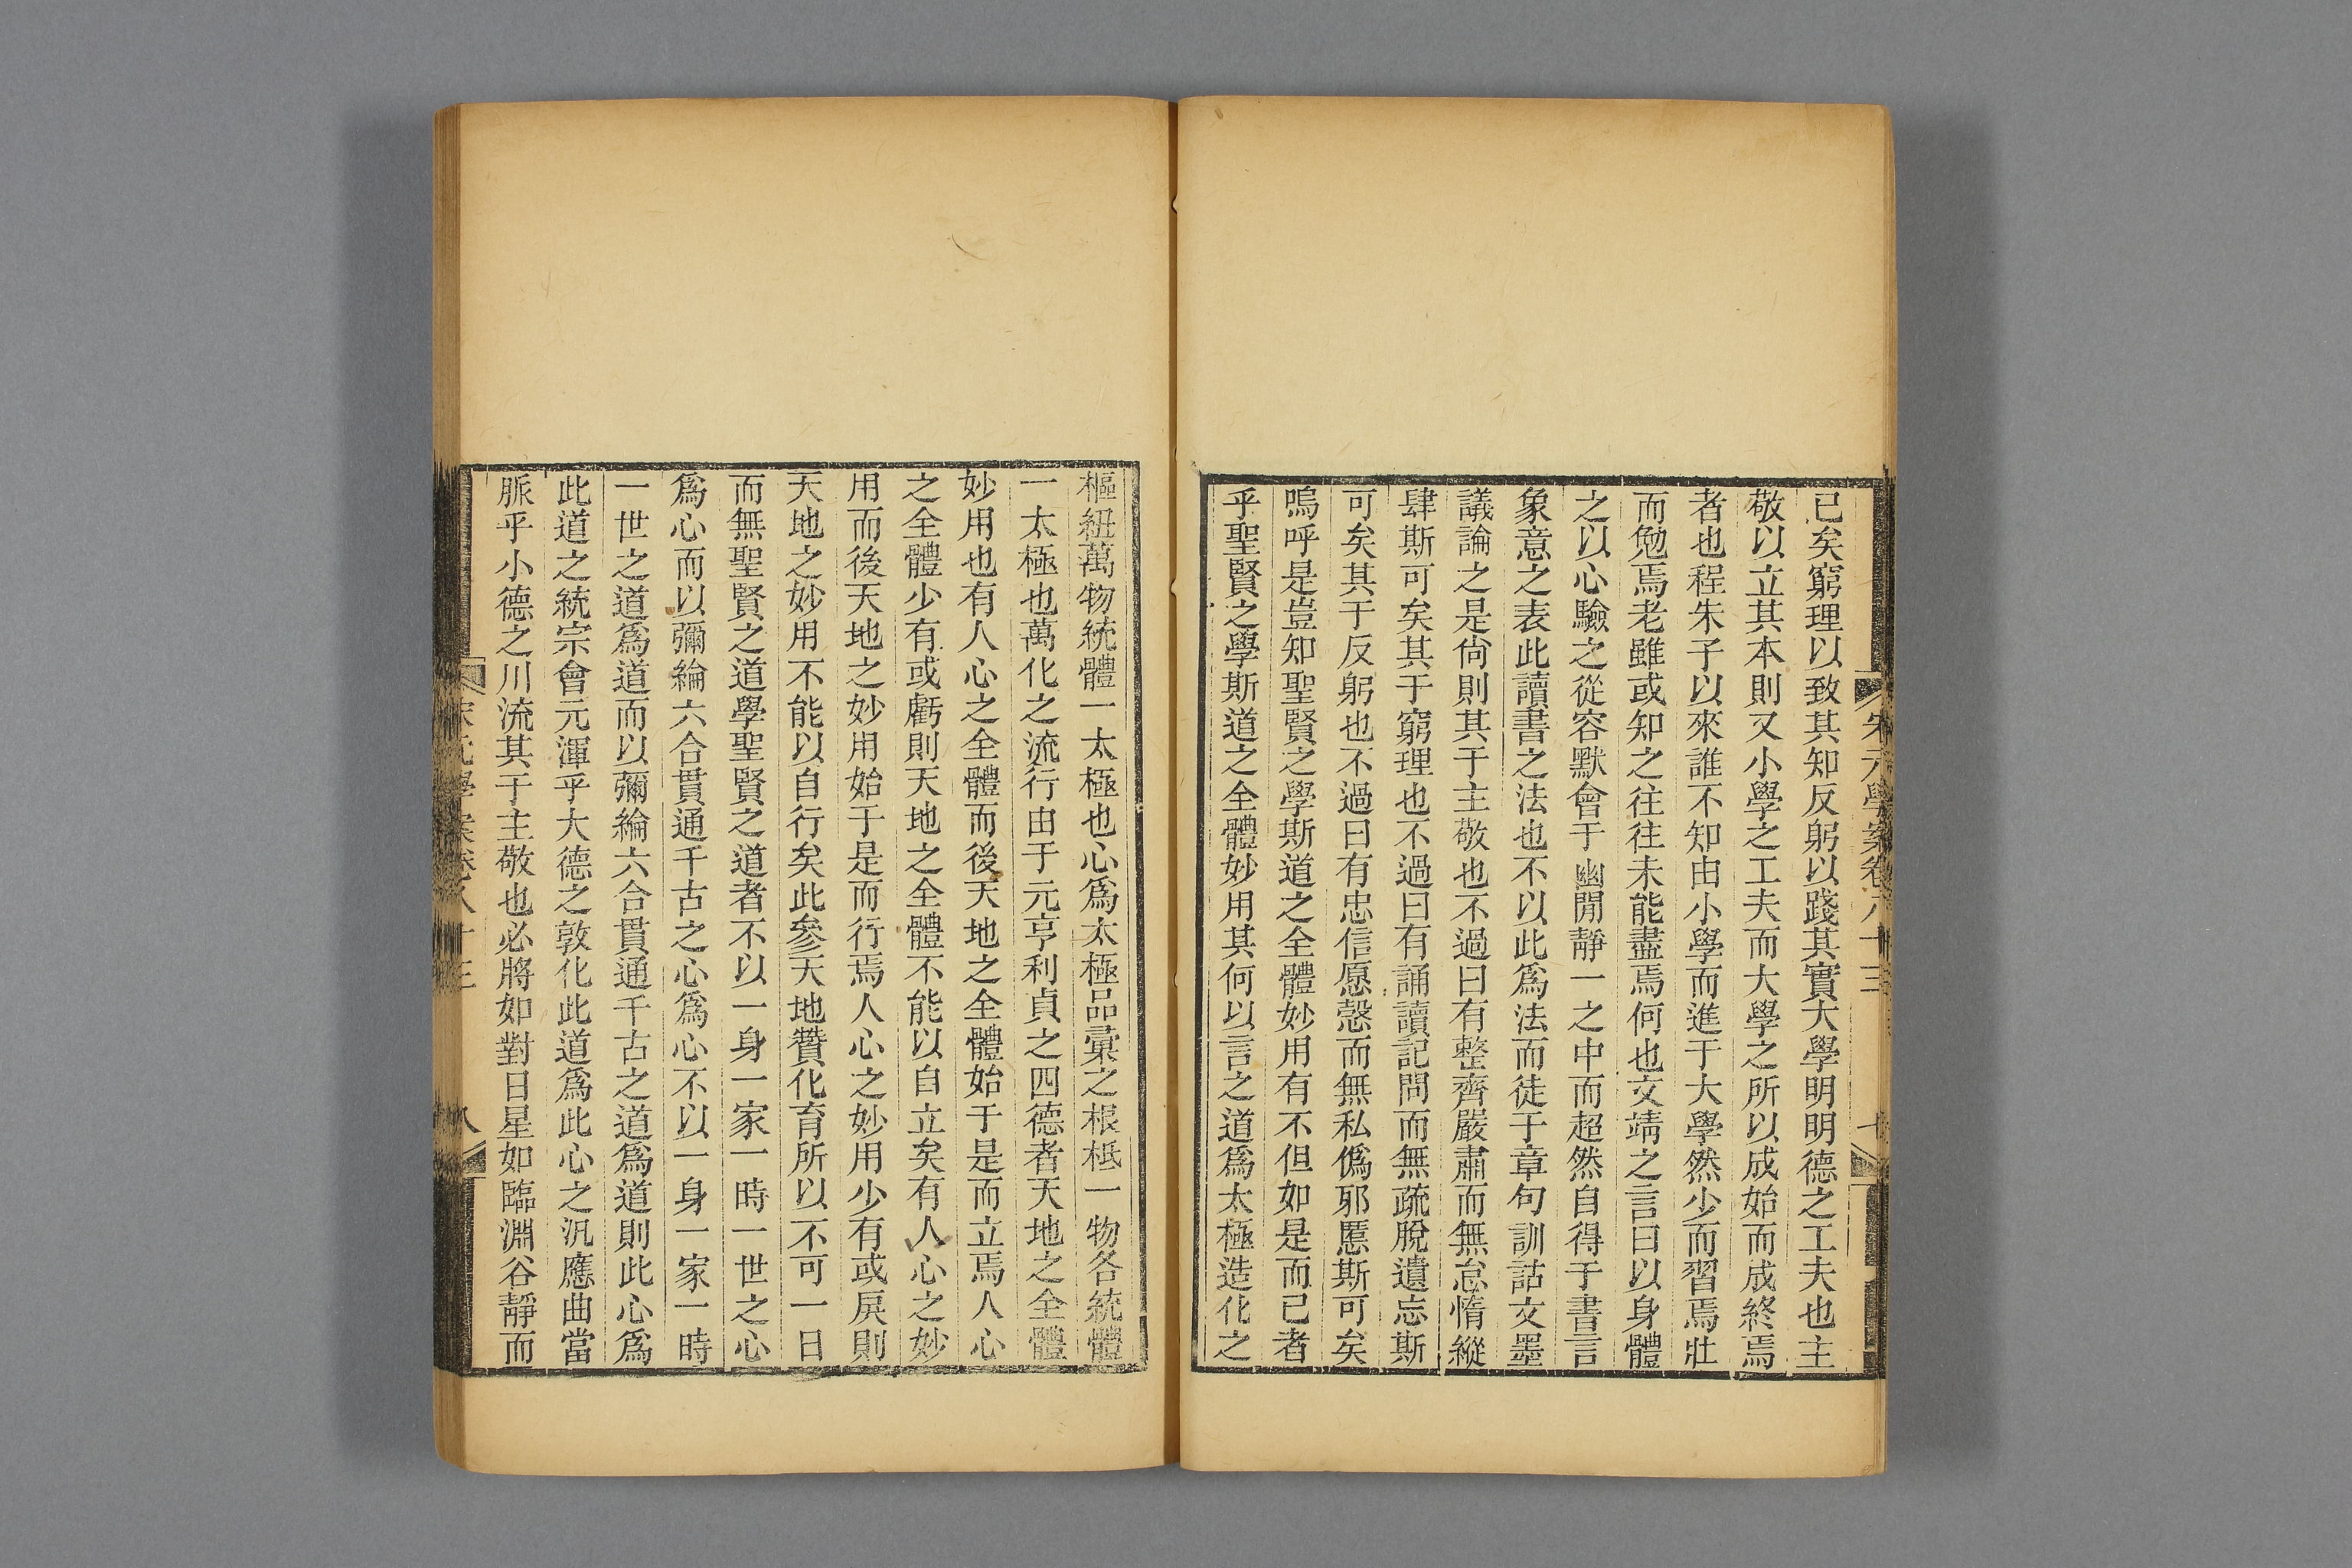 宋元學案卷八十三
七
已矣窮理以致其知反躬以踐其實大學明明德之工夫也主
敬以立其本則又小學之工夫而大學之所以成始而成終焉
者也程朱子以來誰不知由小學而進于大學然少而習焉壯
而勉焉老雖或知之往往未能盡焉何也文靖之言曰以身體
之以心驗之從容默會于幽閒靜一之中而超然自得于書言
象意之表此讀書之法也不以此爲法而徒于章句訓詁文墨
議論之是尙則其于主敬也不過曰有整齊嚴肅而無怠惰縱
肆斯可矣其于窮理也不過曰有誦讀記問而無疏脫遺忘斯
可矣其于反躬也不過曰有忠信愿愨而無私僞邪慝斯可矣
嗚呼是豈知聖賢之學斯道之全體妙用有不但如是而已者
乎聖賢之學斯道之全體妙用其何以言之道爲太極造化之
樞紐萬物統體一太極也心爲太極品彙之根柢一物各統體
一太極也萬化之流行由于元亨利貞之四德者天地之全體
妙用也有人心之全體而後天地之全體始于是而立焉人心
之全體少有或虧則天地之全體不能以自立矣有人心之妙
用而後天地之妙用始于是而行焉人心之妙用少有或戾則
天地之妙用不能以自行矣此參天地贊化育所以不可一日
而無聖賢之道學聖賢之道者不以一身一家一時一世之心
爲心而以彌綸六合貫通千古之心爲心不以一身一家一時
一世之道爲道而以彌綸六合貫通千古之道爲道則此心爲
此道之統宗會元渾乎大德之敦化此道爲此心之汎應曲當
脈乎小德之川流其于主敬也必將如對日星如臨淵谷靜而
宋元學案卷八十三
八